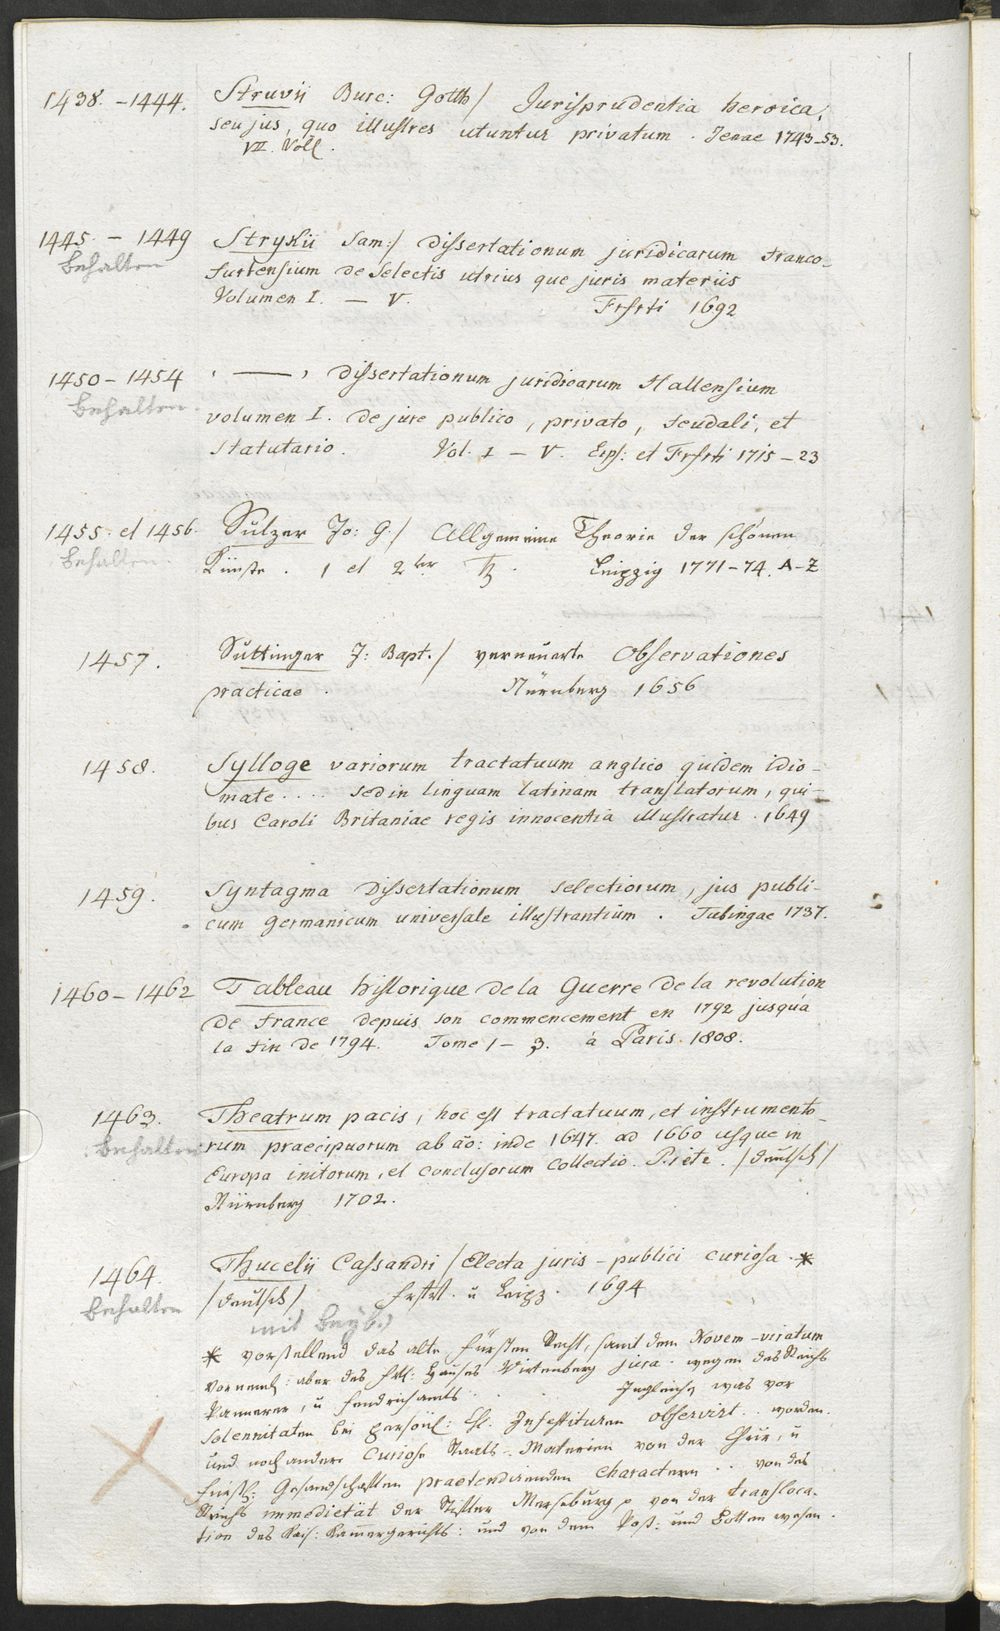 1438. - 1444. Struvii Burc: Gotth/ Jurisprudentia heroica,
seu jus, quo illustres utuntur privatum. Jenae 1743-53.
VII. Voll.
1445. - 1449 Strykii Sam:/ Dissertationum juridicarum Franco-
behalten furtensium de Selectis utrius que juris materiis
Volumen I. - V. Frfrti 1692
1450 - 1454 , —— , Dissertationum juridicarum Hallensium
behalten volumen I. de jure publico, privato, feudali, et
statutario. Vol. I - V. Lips: et Frfrti 1715 - 23
1455. et 1456. Sulzer Jo: G./ Allgemeine Theorie der schönen
behalten Künste. 1 et 2ter Leipzig 1771-74. A-Z
1457. Suttinger J: Bapt./ verneuerte Observationes
practicae. Nürnberg 1656
1458. Sylloge variorum tractatuum anglico quidem idio-
mate .... sed in linguam latinam translatorum, qui-
bus Caroli Britaniae regis innocentia illustratur. 1649
1459. Syntagma Dissertationum selectiorum, jus publi-
cum germanicum universale illustrantium. Tubingae 1737.
1460 - 1462 Tableau historique de la Guerre de la revolution
de France depuis son commencement en 1792 jusqu'a
la fin de 1794. Tome 1 - 3. à Paris. 1808.
1463. Theatrum pacis, hoc est tractatuum, et instrumento-
behalten rum praecipuorum ab ao: inde 1647. ad 1660 usque in
Europa initorum, et conclusorum Collectio. /deutsch/
Nürnberg 1702.
1464. Thucelii Cassandri / Electa juris - publici curiosa. *
behalten /deutsch/ Frfrt. u Leipz. 1694
mit
* vorstellend das alte Fürsten Recht, samt dem Novem-viratum
vornemb: aber des Hauses Wirtenberg jura. wegen des Reichs
Pannerer, u Ingleichen was vor
solennitaten bei Investituren observirt .. worden.
und noch andere Curiose Staats-Materien von der Chur, u
fürstl: Gesandschaften praetendirenden charactern .. von des
Reichs immedietät der Stifter Merseburg von der transloca-
tion des Kais: Kammergerichts: und von dem Post- und Botten wesen.